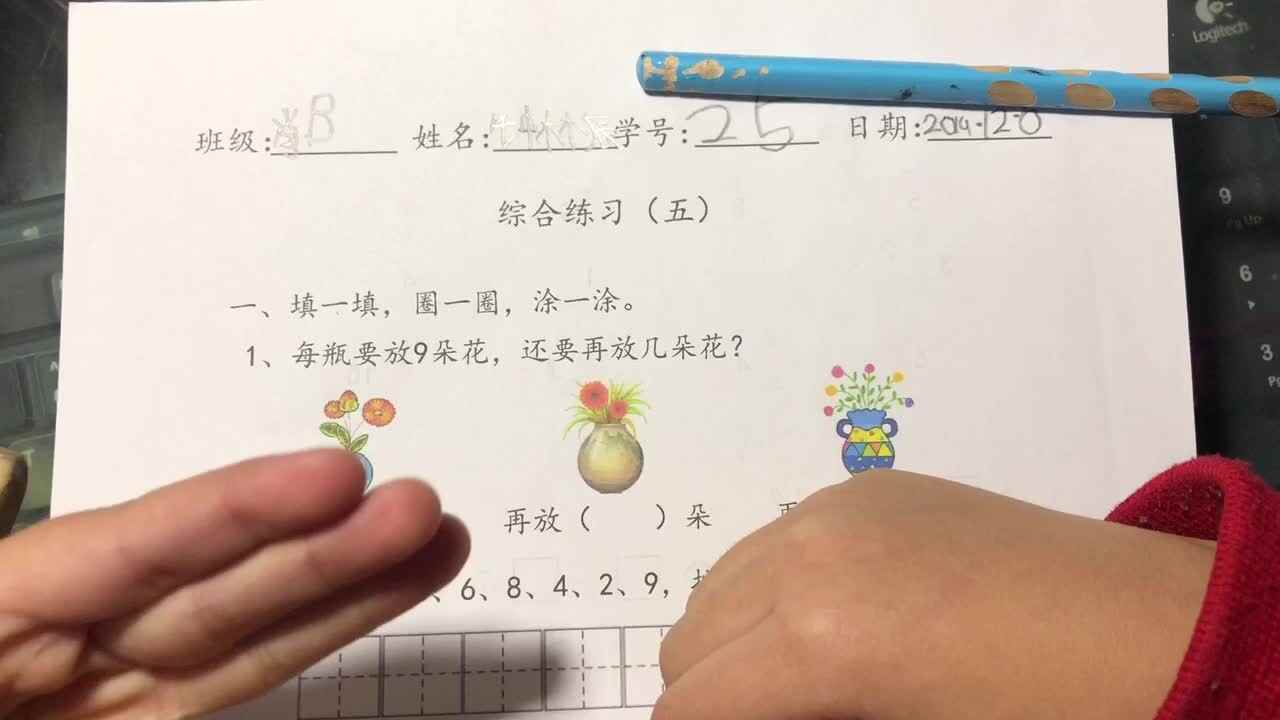 Logitech
班级: 姓名: 学号:25 日期:2014.12.0
综合练习（五）
一、填一填，圈一圈，涂一涂。
1、每瓶要放9朵花，还要再放几朵花？
再放（ ）朵
、6、8、4、2、9，
9
Pg Up
6
3